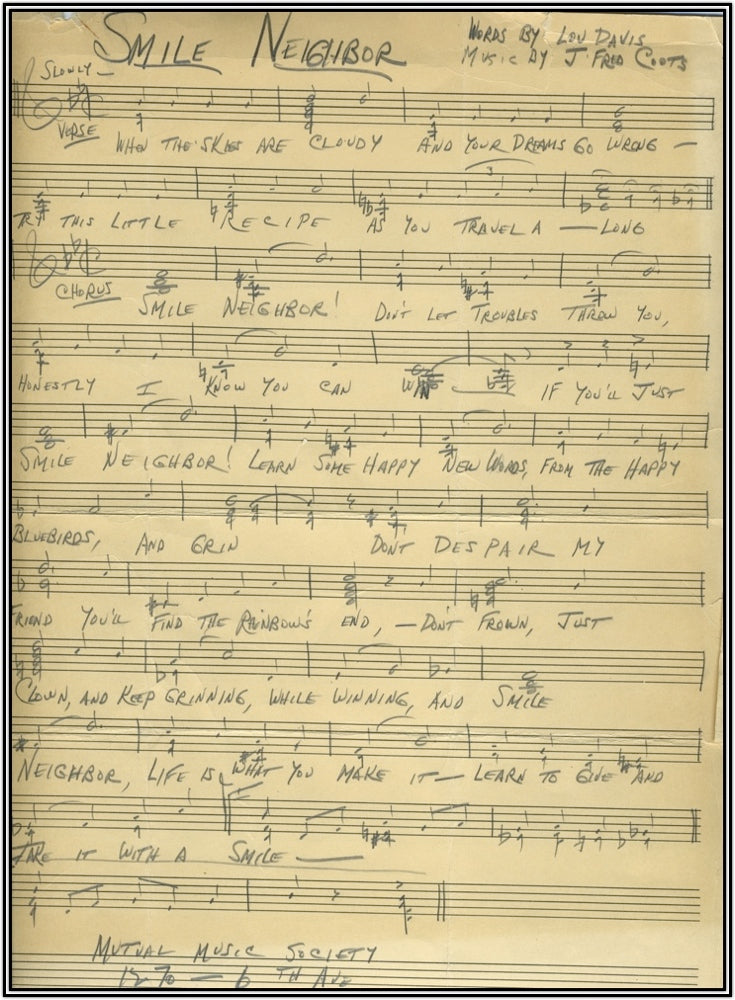 SMILE NEIGHBOR
WORDS BY LOU DAVIS
MUSIC BY J. FRED COOTS
SLOWLY —
VERSE WHEN THE SKIES ARE CLOUDY AND YOUR DREAMS GO WRONG —
TRY THIS LITTLE RECIPE AS YOU TRAVEL A — LONG
CHORUS SMILE NEIGHBOR! DON'T LET TROUBLES THROW YOU,
HONESTLY I KNOW YOU CAN WIN IF YOU'LL JUST
SMILE NEIGHBOR! LEARN SOME HAPPY NEW WORDS, FROM THE HAPPY
BLUEBIRDS, AND GRIN DON'T DESPAIR MY
FRIEND YOU'LL FIND THE RAINBOW'S END, — DON'T FROWN, JUST
CLOWN, AND KEEP GRINNING, WHILE WINNING, AND SMILE
NEIGHBOR, LIFE IS WHAT YOU MAKE IT — LEARN TO GIVE AND
TAKE IT WITH A SMILE —
MUTUAL MUSIC SOCIETY
1270 — 6TH AVE